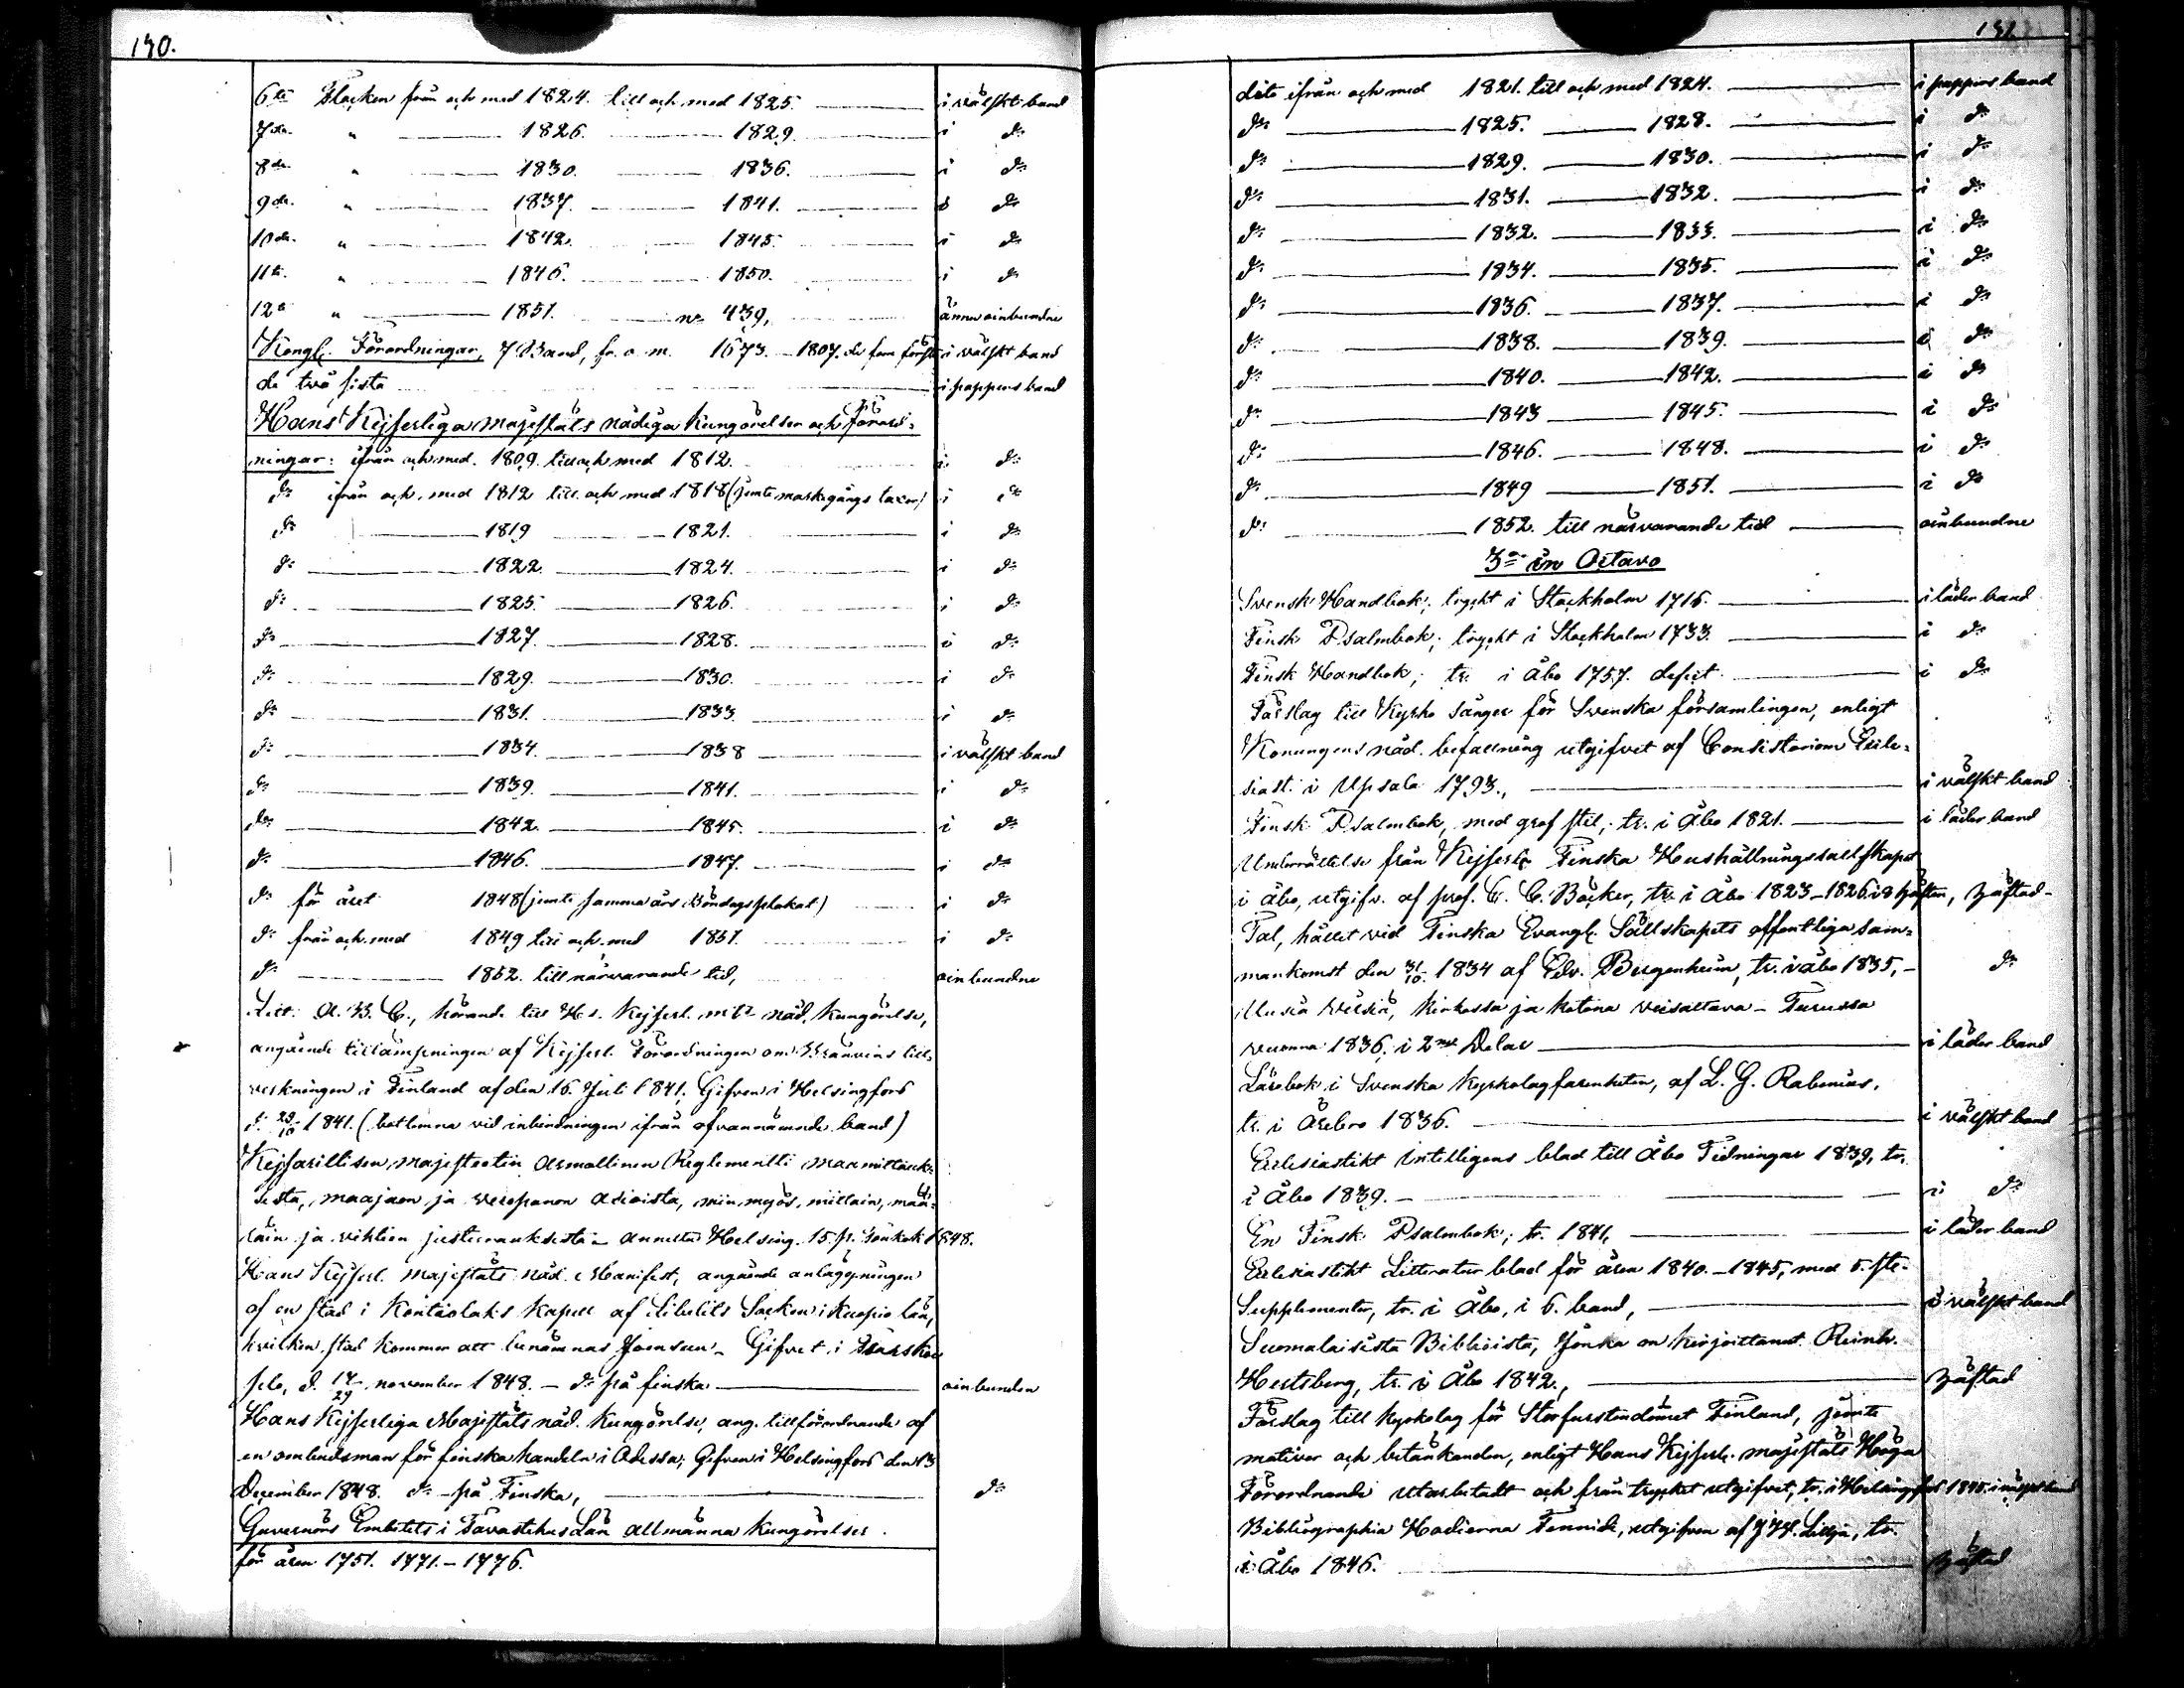 190.
6te Flocken från och med 1824. till och med 1825. i välskt band
7de " 1826. 1829. i do
8de " 1830. 1836. i do
9de " 1837. 1841. i do
10de " 1842. 1845. i do
11te " 1846. 1850. i do
12te " 1851. no 439, ännu oinbundne
Kongl. Förordningar, 7 Band, fr. o. m. 1673.-1807. de fem första i välskt band
de två sista i pappers band
Hans Kejserliga Majestäts nådiga Kungörelser och Förord-
ningar: ifrån och med. 1809. till och med 1812. i do
do ifrån och med 1812 till och med 1818 (jemte markegångs taxor) i do
do 1819 1821. i do
do 1822. 1824. i do
do 1825. 1826. i do
do 1827. 1828. i do
do 1829. 1830. i do
do 1831. 1833. i do
do 1834. 1838 i välskt band
do 1839. 1841. i do
do 1842. 1845. i do
do 1846. 1847. i do
do för året 1848 (jemte samma års Böndagsplakat) i do
do från och med 1849 till och med 1851. i do
do 1852. till närvarande tid, oinbundne
Litt. A. B. C., hörande till H. Kejserl. M:ts nåd. Kungörelse,
angående tillämpningen af Kejserl. Förordningen om Bränvins till-
verkningen i Finland af den 16. Juli 1841; Gifven i Helsingfors
d. 29/10 1841. (bortlemna vid inbindningen ifrån ofvannämnde band)
Kejsarillisen Majesteetin Armollinen Reglementti maanmittauk-
sista, maajaon ja veropanon asioista, niin myös, mittain, määr-
räin ja vihtien justeerauksesta - annettu Helsing. 15. p. 1848.
Hans Kejserl. Majestäts nåd. Manifest, angående anläggningen
af en stad i Kontiolaks Kapell af Libelits Socken i Kuopio län,
hvilken stad kommer att benämnas Joensuu - Gifvet i Zarskoe
selo, d. 17/29 november 1848. - do på finska. oinbunden
Hans Kejserliga Majestäts nåd. Kungörelse, ang. tillförordnande af
en ombudsman för finska handeln i Odessa; Gifven i Helsingfors den 13
December 1848. do på Finska, do
Guvernörs Embetets i Tavastehus Län allmänna Kungörelser.
för åren 1751. 1771.-1776.
191.
dito ifrån och med 1821. till och med 1824. i pappers band
do 1825. 1828. i do
do 1829. 1830. i do
do 1831. 1832. i do
do 1832. 1833. i do
do 1834. 1835. i do
do 1836. 1837. i do
do 1838. 1839. i do
do 1840. 1842. i do
do 1843 1845. i do
do 1846. 1848. i do
do 1849 1851. i do
do 1852. till närvarande tid oinbundne
3o in Octavo
Svensk Handbok; tryckt i Stockholm 1716. i läder band
Finsk Psalmbok; tryckt i Stockholm 1733. i do
Finsk Handbok; tr. i Åbo 1757. defect i do
Förslag till Kyrko Sånger för Svenska församlingen, enligt
Konungens nåd. befallning utgifvet af Consistorium Eccle-
siast. i Upsala 1793., i välskt band
Finsk Psalmbok, med grof stil; tr. i Åbo 1821. i läder band
Underrättelse från Kejserl. Finska Hushållningssällskapet
i Åbo, utgifv. af prof. C. C. Böcker, tr. i Åbo 1823-1826. i 8 häften, häftad
Tal, hållet vid Finska Evangl. Sällskapets offentliga sam-
mankomst den 31/10 1834 af Edv. Bergenheim, tr. i Åbo 1835, do
Uusia Virsiä, kirkossa ja kotona veisattava - Turussa
vuonna 1836; i 2ne Delar i läder band
Lärobok i Svenska Kyrkolagfarenheten, af L. G. Rabenius,
tr. i Örebro 1836. i välskt band
Ecclesiastikt Intelligens blad till Åbo Tidningar 1839, tr.
i Åbo 1839. i do
En Finsk Psalmbok; tr. 1841, i läder band
Ecclesiastikt Litteratur blad för åren 1840.-1845, med 5. st.
Supplementer, tr. i Åbo, i 6. band, i välskt band
Suomalaisista Biblioista, Jonka on kirjoittanut Reinh.
Hertzberg, tr. i Åbo 1842., häftad
Förslag till Kyrkolag för Storfurstendömet Finland, jemte
motiver och betänkanden, enligt Hans Kejserl. Majestäts Höga
Förordnande utarbetadt och från trycket utgifvet; tr. i Helsingfors 1845. i välskt band
Bibliographia Hodierna Fennicae, utgifven af J. W. Lillja, tr.
i Åbo 1846. häftad